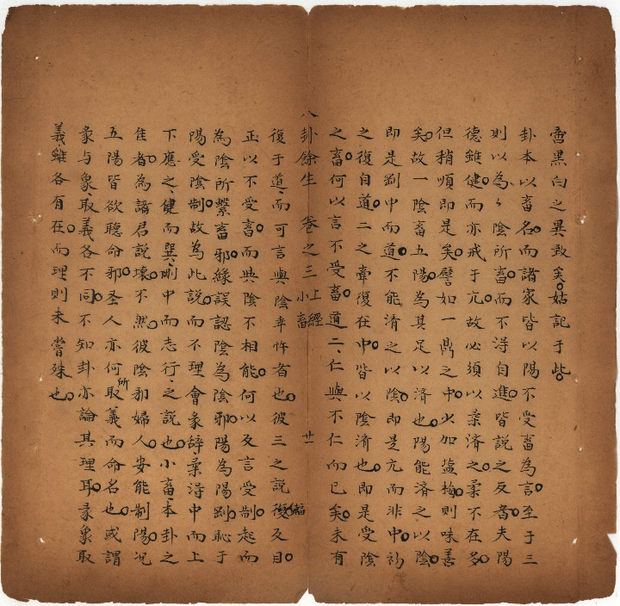 啻黑白之異致矣姑記于此
卦本以畜名而諸家皆以陽不受畜為言至于三
則以為〻陰所畜而不得自進皆說之反者夫陽
德雖健而亦戒于亢故必須以柔濟之柔不在多
但稍順即是矣譬如一鼎之中少加鹽梅則味善
矣故一陰畜五陽為其足以濟也陽能濟之以陰
即是剛中而道不能濟之以陰即是亢而非中初
之復自道二之牽復在中皆以陰濟也即是受陰
之畜何以言不受畜道二仁與不仁而已矣未有
八卦餘生 卷之三 上經 小畜 廿一
復于道而可言與陰乖忤者也彼三之說輻反目
正以不受畜而與陰不相能何以反言受制起而
為陰所繫畜邪緣誤認陰為陰邪陽為陽剛恥于
陽受陰制故為此說而不理會彖辭柔得中而上
下應之健而巽剛中而志行之說也小畜本卦之
佳者為諸君說壞不然彼陰邪婦人安能制陽况
五陽皆欲聽命邪圣人亦何所取義而命名也或謂
彖与象取義各不同不知卦亦論其理耳彖象取
義雖各有在而理則未嘗殊也